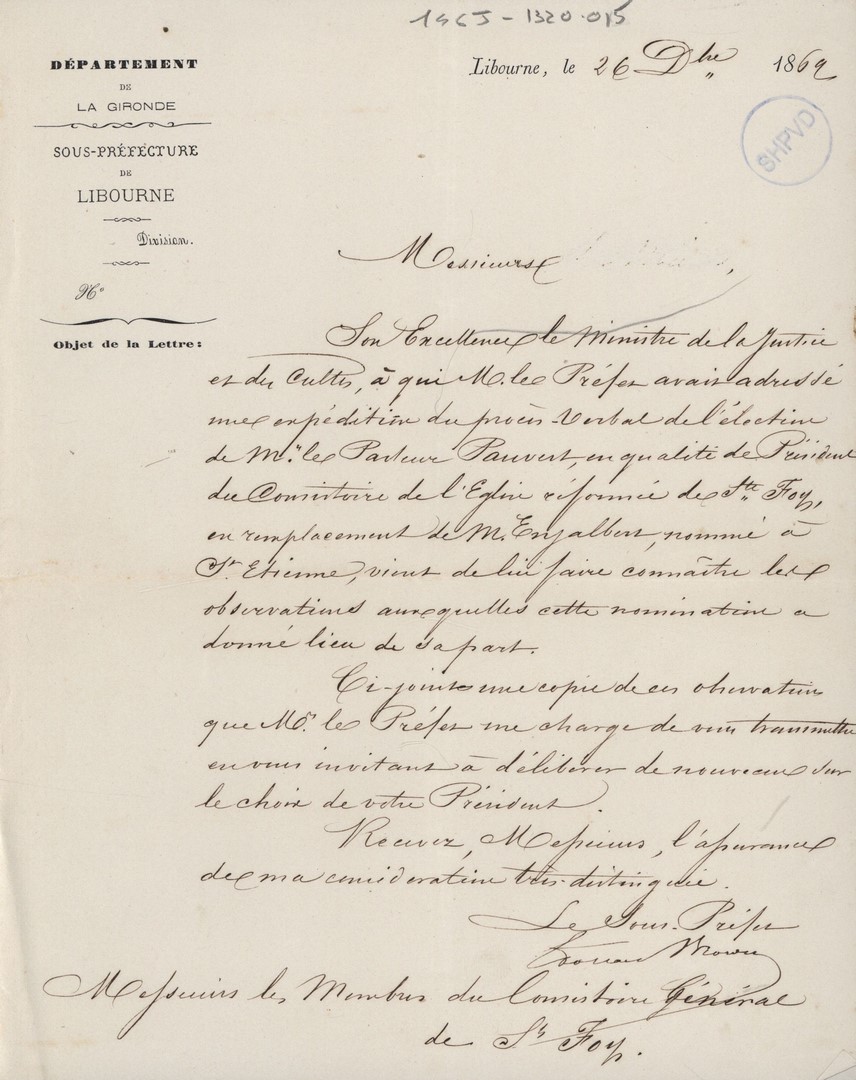 1965-1320-015
DÉPARTEMENT
DE
LA GIRONDE
SOUS-PRÉFECTURE
DE
LIBOURNE
Division.
N°
Objet de la Lettre:
Libourne, le 26 Dbre 1869
SHPVD
Messieurs,
Son Excellence le Ministre de la Justice
et des Cultes, à qui M. le Préfet avait adressé
une expédition du procès-verbal de l'élection
de Mr. le Pasteur Pauvert, en qualité de Président
du Consistoire de l'Eglise réformée de Ste Foy,
en remplacement de M. Enjalbert, nommé à
St. Etienne, vient de lui faire connaître les
observations auxquelles cette nomination a
donné lieu de sa part.
Ci-joint une copie de ces observations
que Mr. le Préfet me charge de vous transmettre
en vous invitant à délibérer de nouveau sur
le choix de votre Président.
Recevez, Messieurs, l'assurance
de ma considération très-distinguée.
Le Sous-Préfet
Messieurs les Membres du Consistoire Général
de Ste Foy.